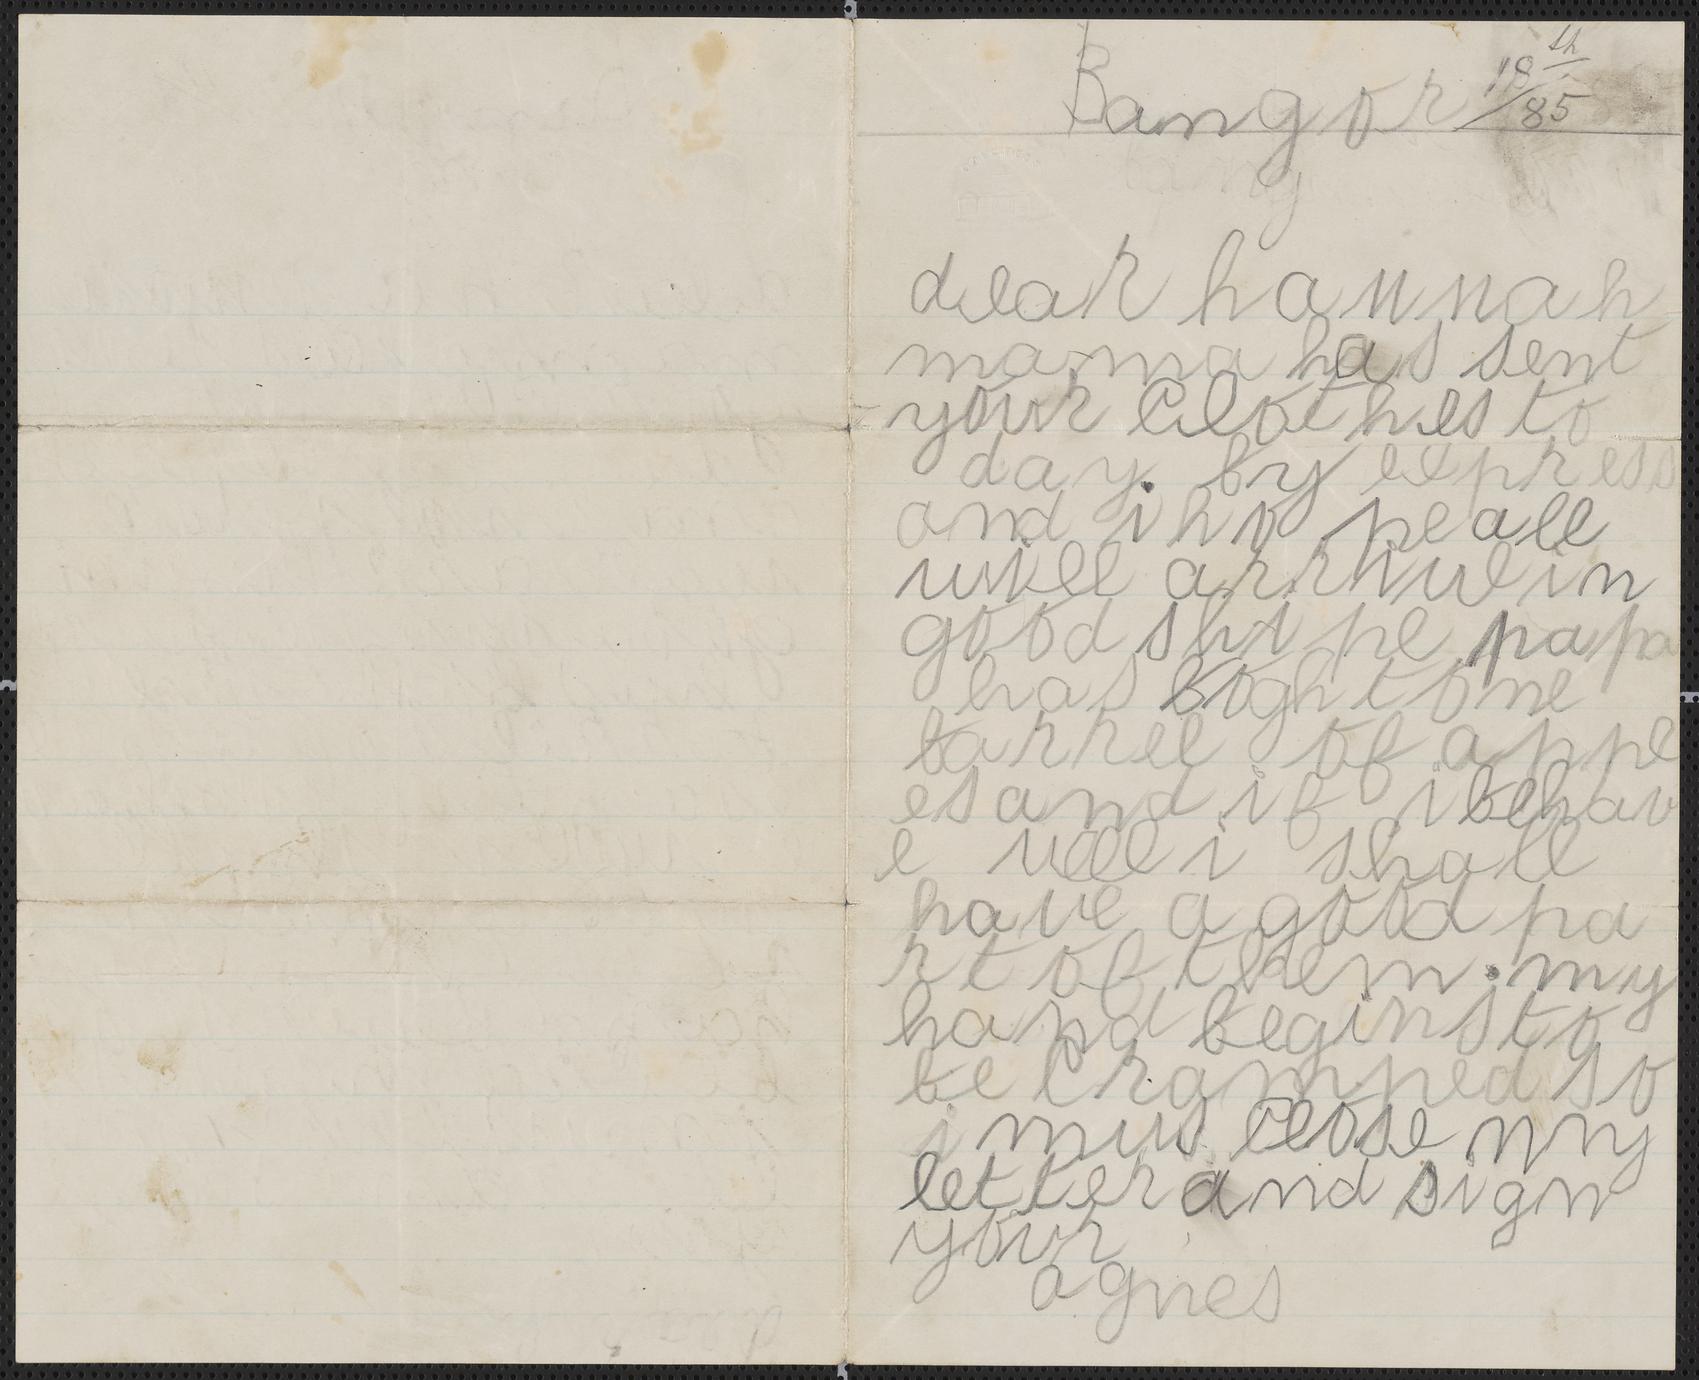 Bangor 18th/85
dear hannah
mamma has sent
your clothes to
day. by express
and i ho pe all
will arrive in
good shi pe papa
has boght one
barrel of appl
es and if i behav
e well i shall
have a good pa
rt of them. my
hand begins to
be cramped so
i mus close my
letter and sign
your
agnes